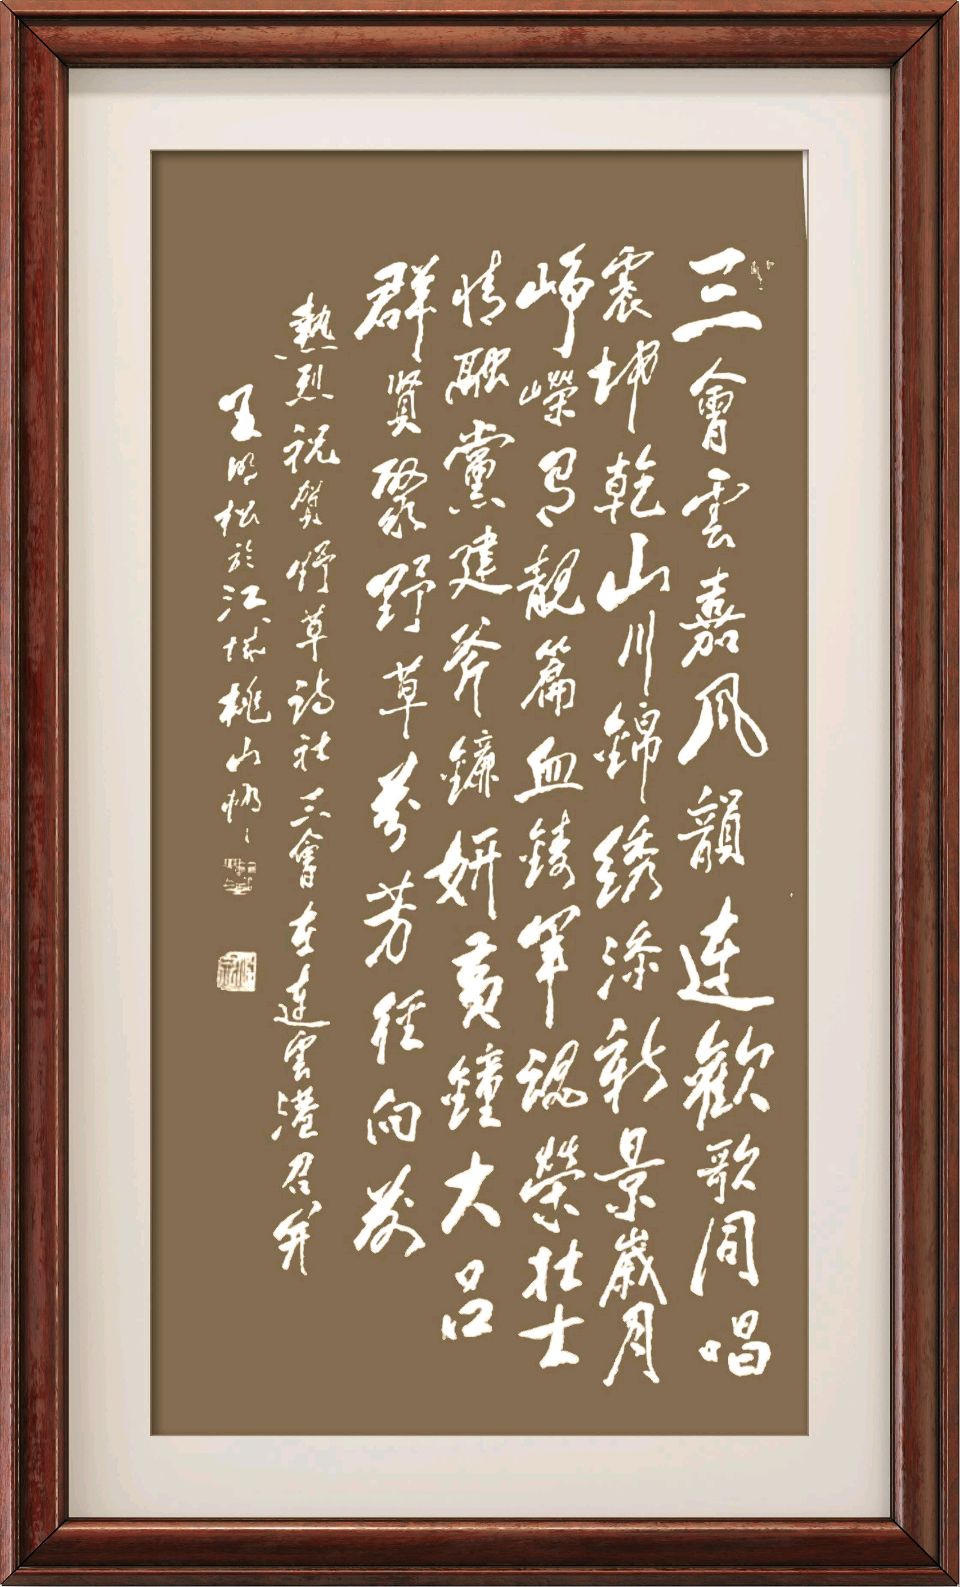 三會雲嘉風韻連歡歌同唱
震坤乾山川錦绣添新景歲月
崢嶸寫靓篇血鑄軍魂榮壯士
情融黨建斧鐮妍黃鐘大吕
群贤聚野草芬芳径向前
熱烈祝贺野草诗社三會在連雲港召开
王明松於江城桃山